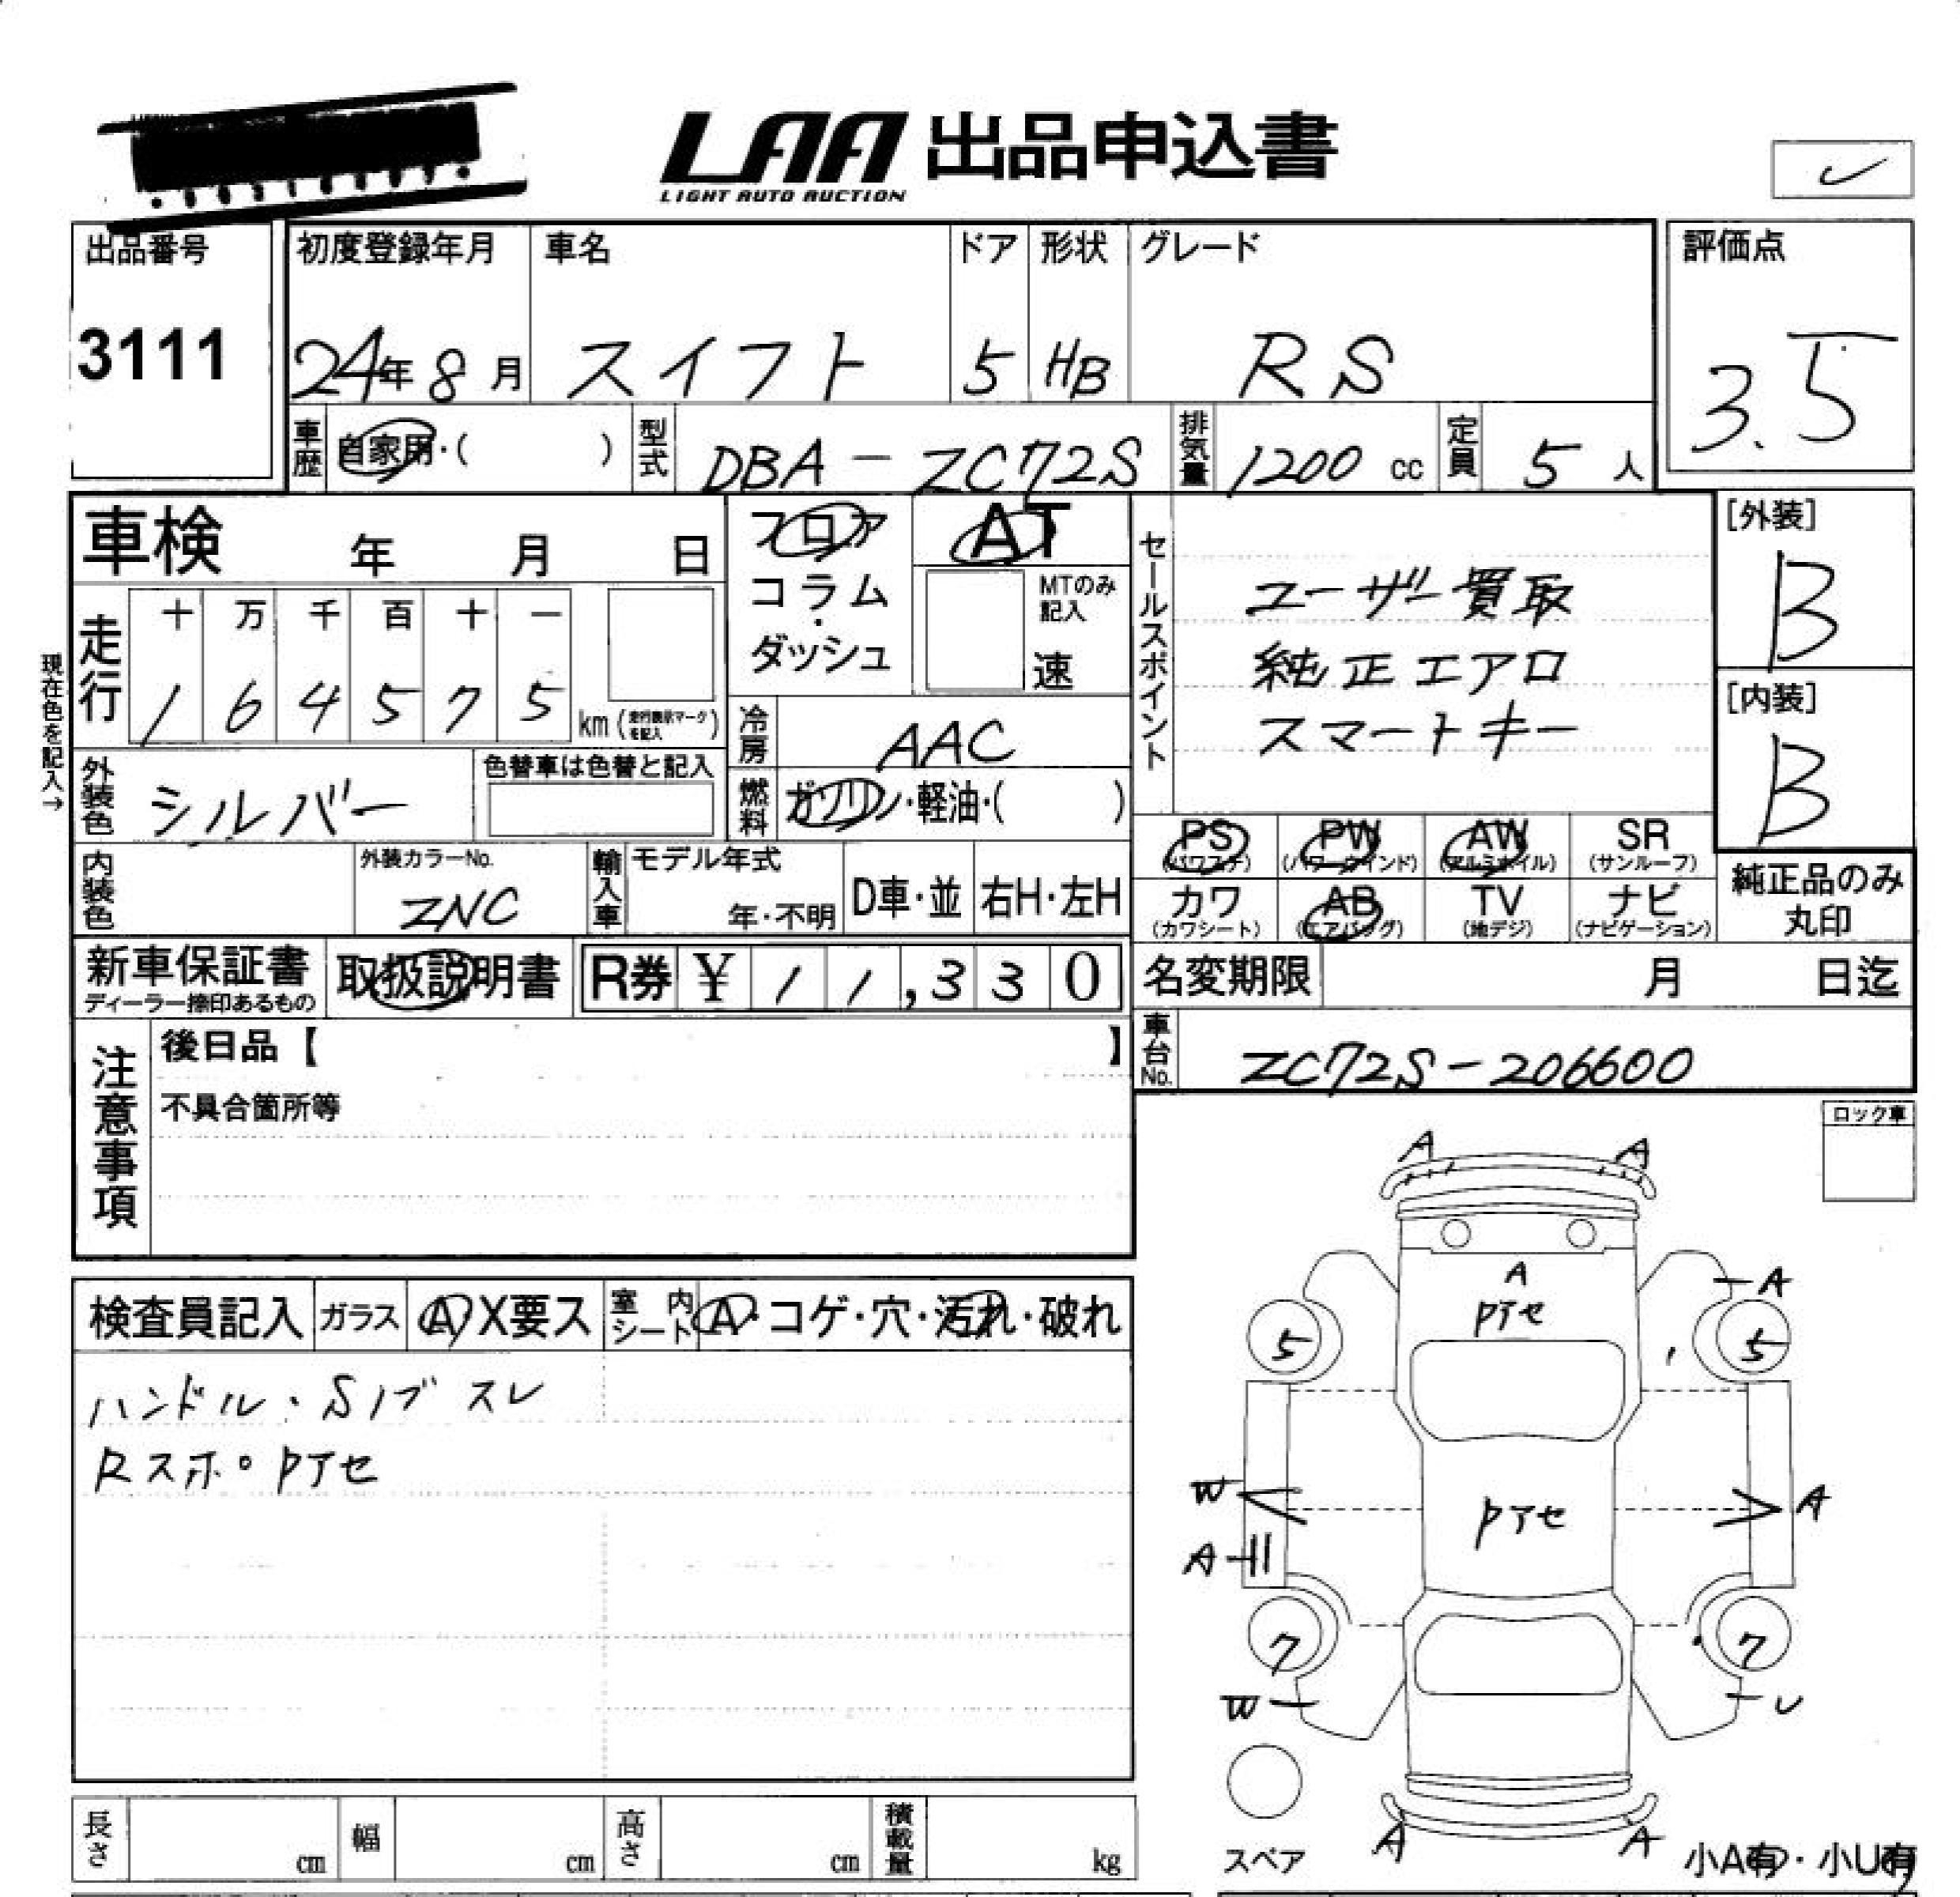 LAA 出品申込書
LIGHT AUTO AUCTION
出品番号
3111
初度登録年月 車名 ドア 形状 グレード
24年 8月 スイフト 5 HB RS
評価点
3.5
車歴 自家用・( ) 型式 DBA-ZC72S 排気量 1200 cc 定員 5 人
車検 年 月 日
フロア
コラム・
ダッシュ
AT
MTのみ
記入
速
走行
十 万 千 百 十 一
1 6 4 5 7 5 km (走行表示マークを記入)
現在色を記入→
冷房 AAC
燃料 ガソリン・軽油・( )
外装色 シルバー
色替車は色替と記入
内装色
外装カラーNo.
ZNC
輸入車 モデル年式
年・不明 D車・並 右H・左H
セールスポイント
ユーザー買取
純正エアロ
スマートキー
[外装]
B
[内装]
B
PS PW AW SR
(パワステ) (パワーウインド) (アルミホイル) (サンルーフ)
カワ AB TV ナビ
(カワシート) (エアバッグ) (地デジ) (ナビゲーション)
純正品のみ
丸印
新車保証書
ディーラー捺印あるもの
取扱説明書
R券 ¥ 1 1,3 3 0
名変期限 月 日迄
車台No. ZC72S-206600
注意事項
後日品【 】
不具合箇所等
ロック車
検査員記入 ガラス A X要ス 室内シート A・コゲ・穴・汚れ・破れ
ハンドル・Sノブ スレ
Rスポ。Pアセ
A A
A
Pアセ
A
5 5
W
Pアセ
A
A
7 7
W U
スペア
A A
小A有・小U有
長さ cm 幅 cm 高さ cm 積載量 kg